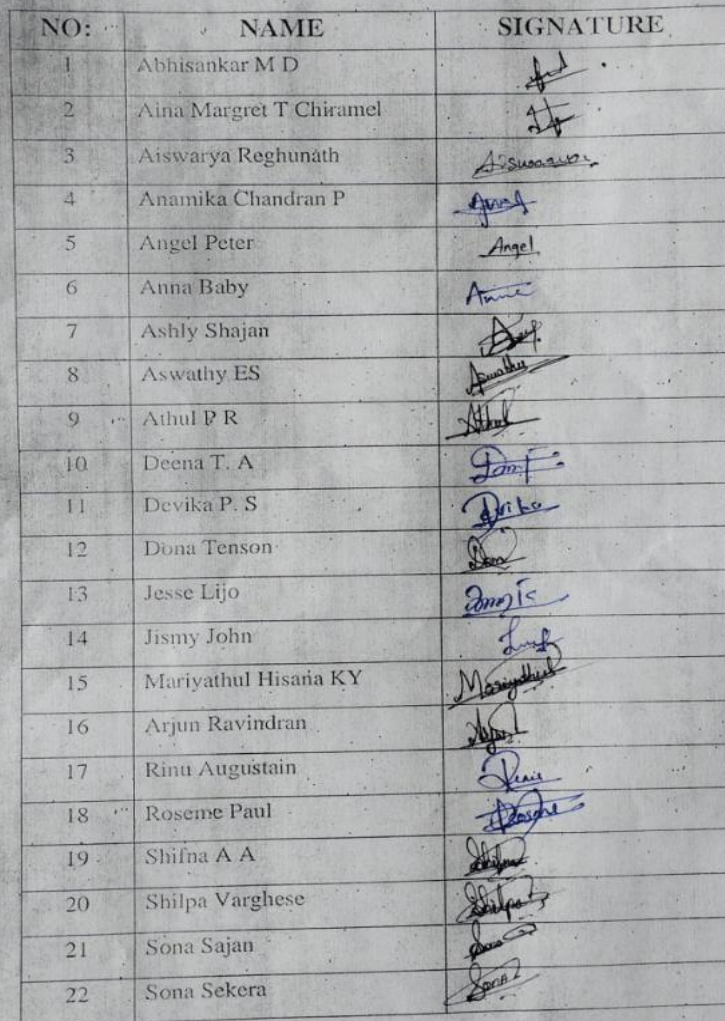 NO: NAME SIGNATURE
1 Abhisankar M D
2 Aina Margret T Chiramel
3 Aiswarya Reghunath
4 Anamika Chandran P
5 Angel Peter Angel
6 Anna Baby
7 Ashly Shajan
8 Aswathy ES Aswathy
9 Athul P R Athul
10 Deena T. A
11 Devika P. S Devika
12 Dona Tenson
13 Jesse Lijo
14 Jismy John
15 Mariyathul Hisana KY Mariyathul
16 Arjun Ravindran
17 Rinu Augustain
18 Roseme Paul
19 Shifna A A Shifna
20 Shilpa Varghese Shilpa
21 Sona Sajan Sona
22 Sona Sekera Sona